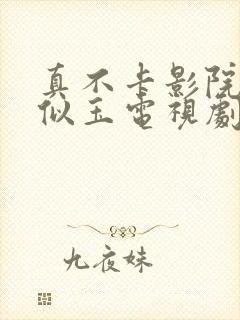 真不卡影院
似玉電視劇
九夜妹